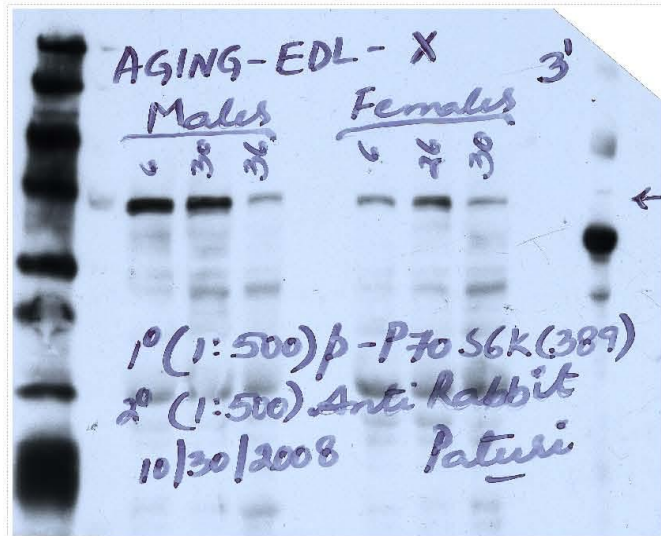 AGING-EDL-X 3'
Males Females
6 30 36 6 26 30
←
1° (1:500) p-P70 S6K (389)
2° (1:500) Anti Rabbit
10/30/2008 Paturi